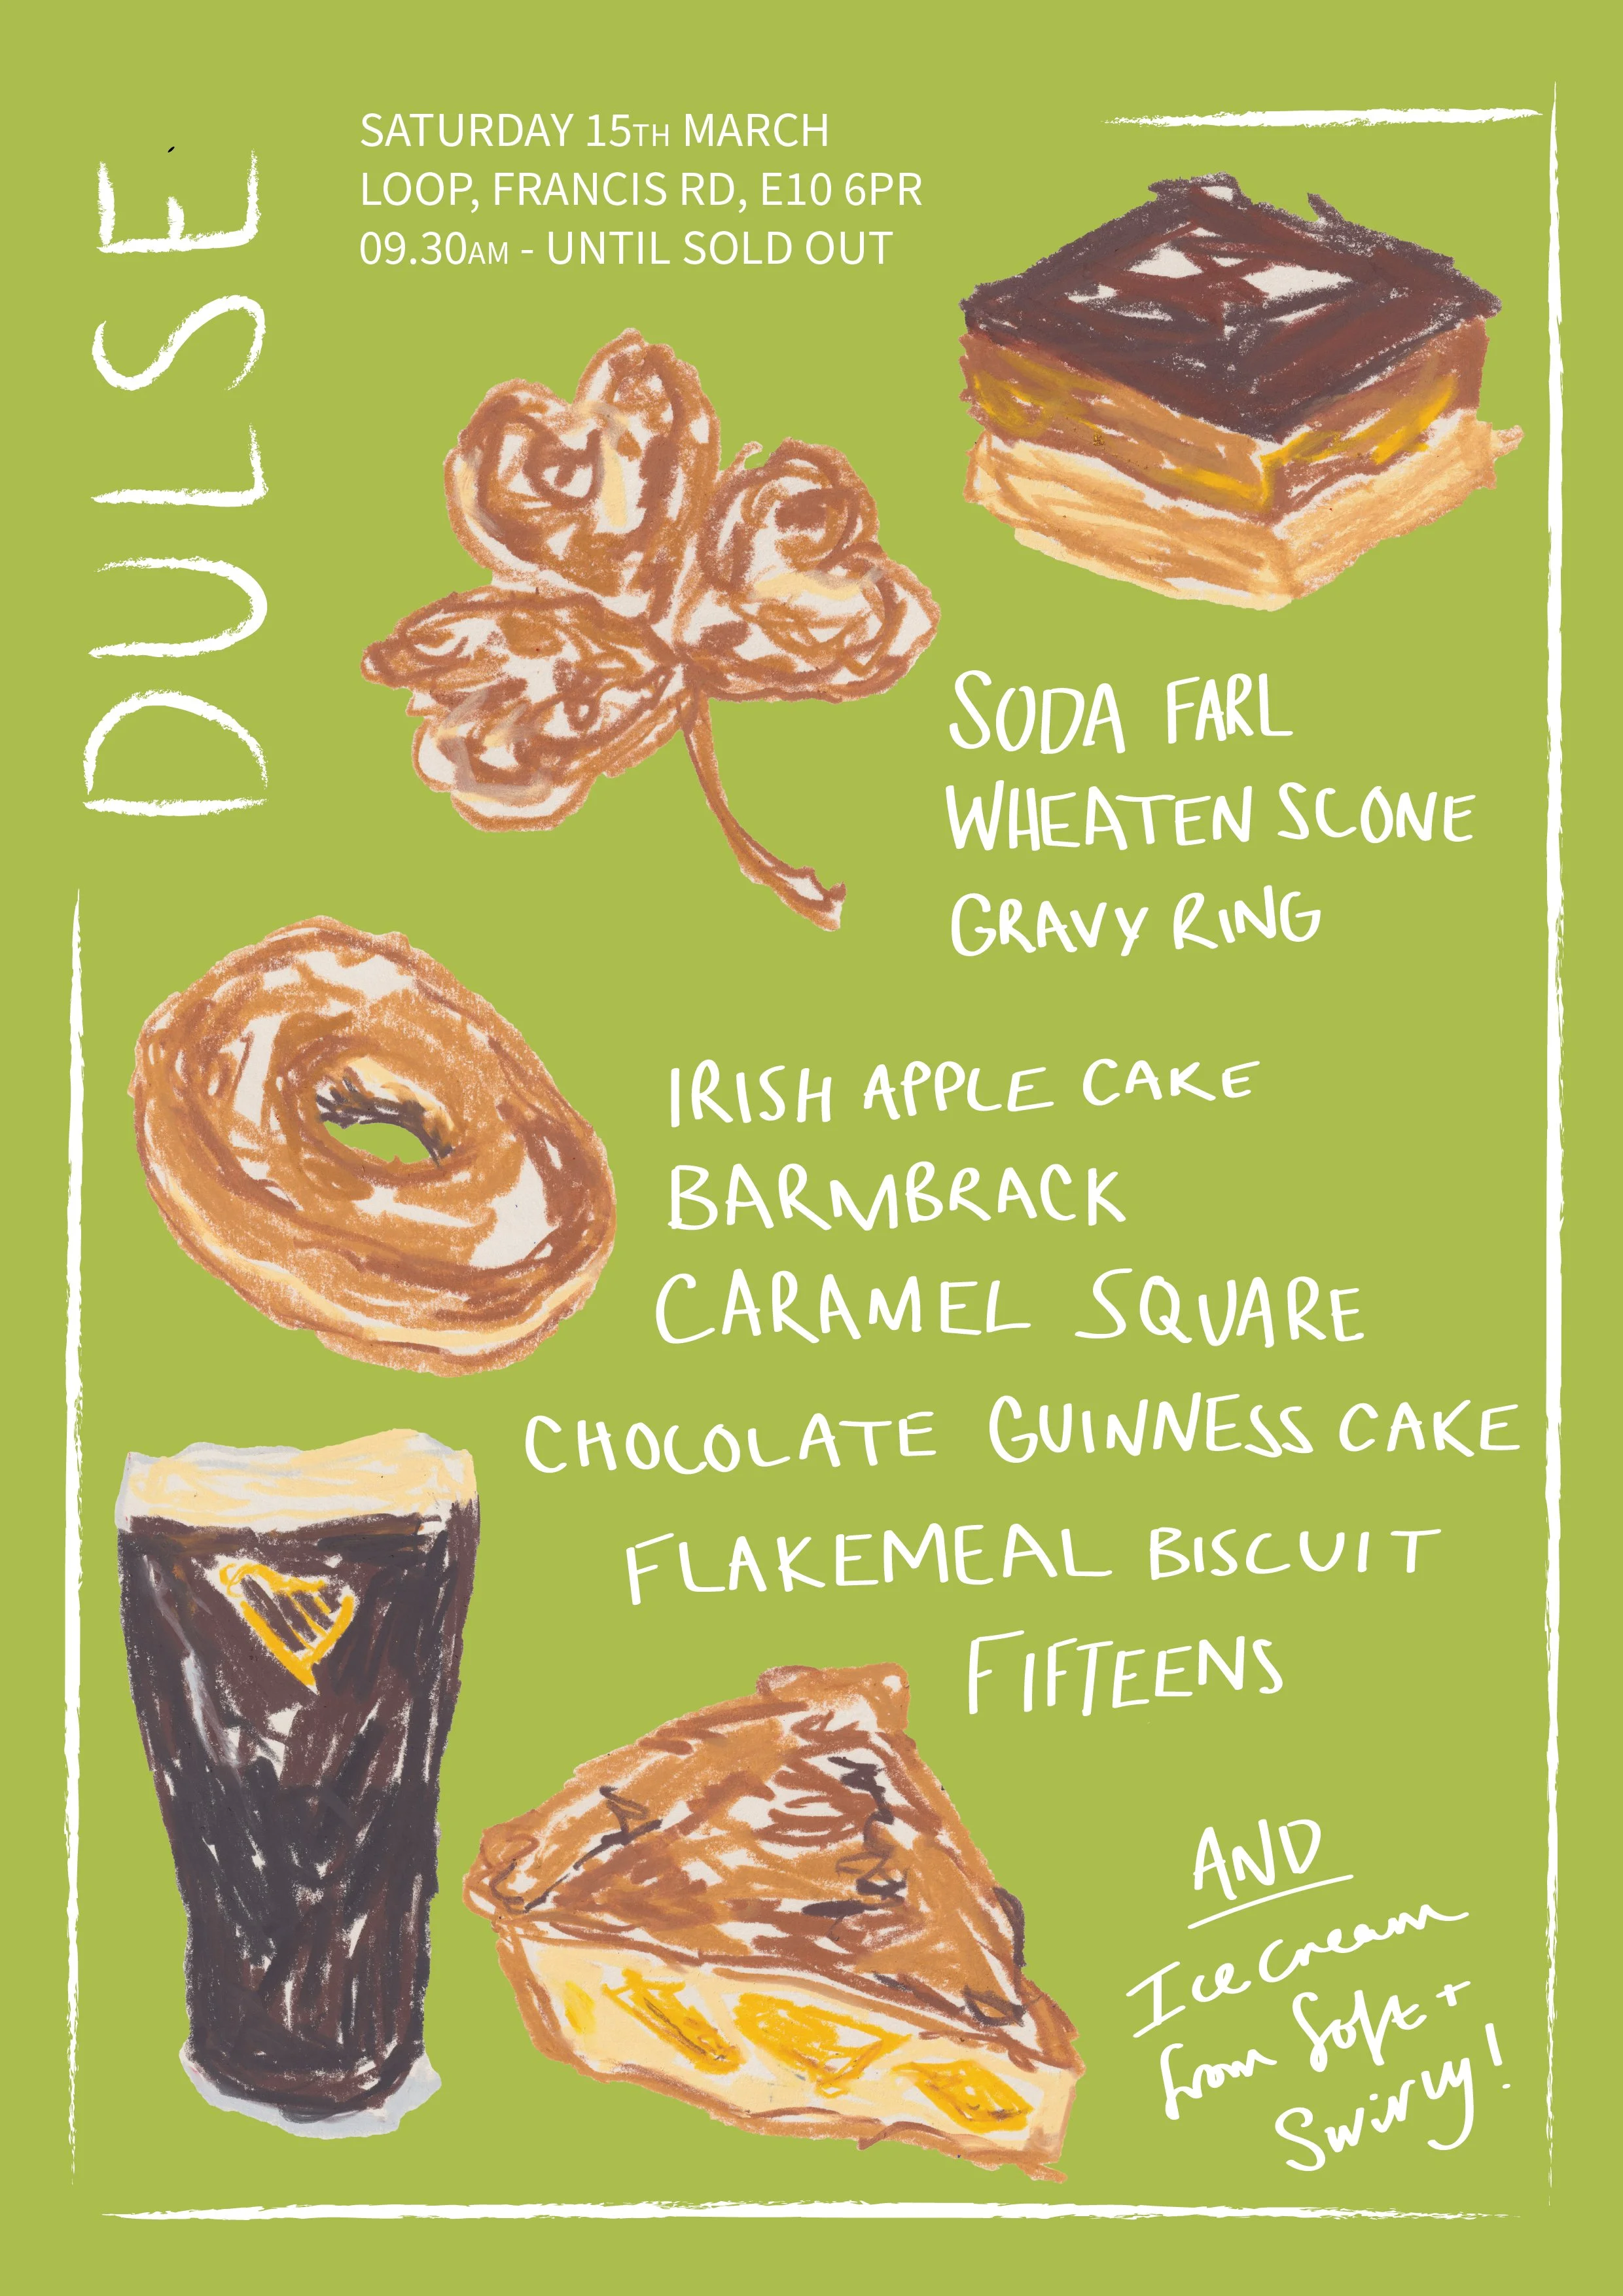 DULSE
SATURDAY 15TH MARCH
LOOP, FRANCIS RD, E10 6PR
09.30AM - UNTIL SOLD OUT
SODA FARL
WHEATEN SCONE
GRAVY RING
IRISH APPLE CAKE
BARMBRACK
CARAMEL SQUARE
CHOCOLATE GUINNESS CAKE
FLAKEMEAL BISCUIT
FIFTEENS
AND
Ice cream
from Soft +
Swirvy!